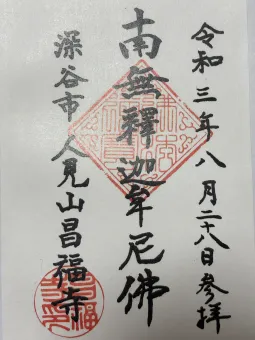 令和三年八月二十八日参拝
南無釋迦牟尼佛
深谷市人見山昌福寺